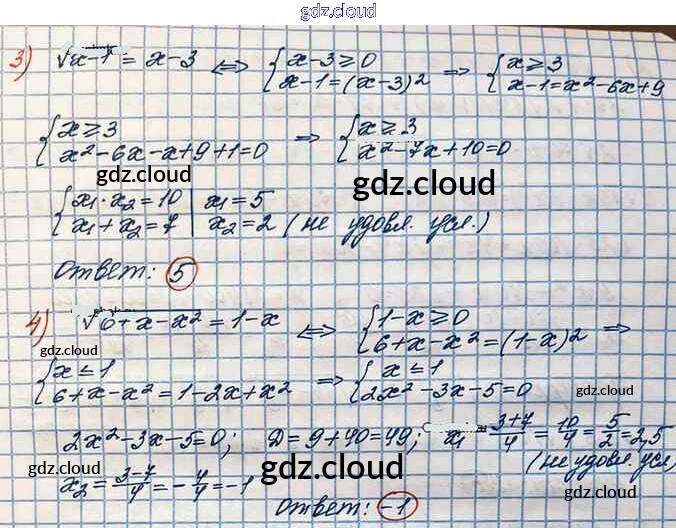 gdz.cloud
3) √x-1 = x-3 ⇔ { x-3≥0 x-1=(x-3)² ⇒ { x≥3 x-1=x²-6x+9
{ x≥3 x²-6x-x+9+1=0 ⇒ { x≥3 x²-7x+10=0
gdz.cloud
{ x₁·x₂=10 x₁+x₂=7 | x₁=5 x₂=2 (не удовл. усл.)
Ответ: 5
4) √6+x-x² = 1-x ⇔ { 1-x≥0 6+x-x²=(1-x)² ⇒
gdz.cloud
{ x≤1 6+x-x²=1-2x+x² ⇒ { x≤1 2x²-3x-5=0
gdz.cloud
2x²-3x-5=0; Д=9+40=49; x₁=3+7/4=10/4=5/2=2,5
(не удовл. усл)
gdz.cloud
gdz.cloud
x₂=3-7/4=-4/4=-1
gdz.cloud
Ответ: -1